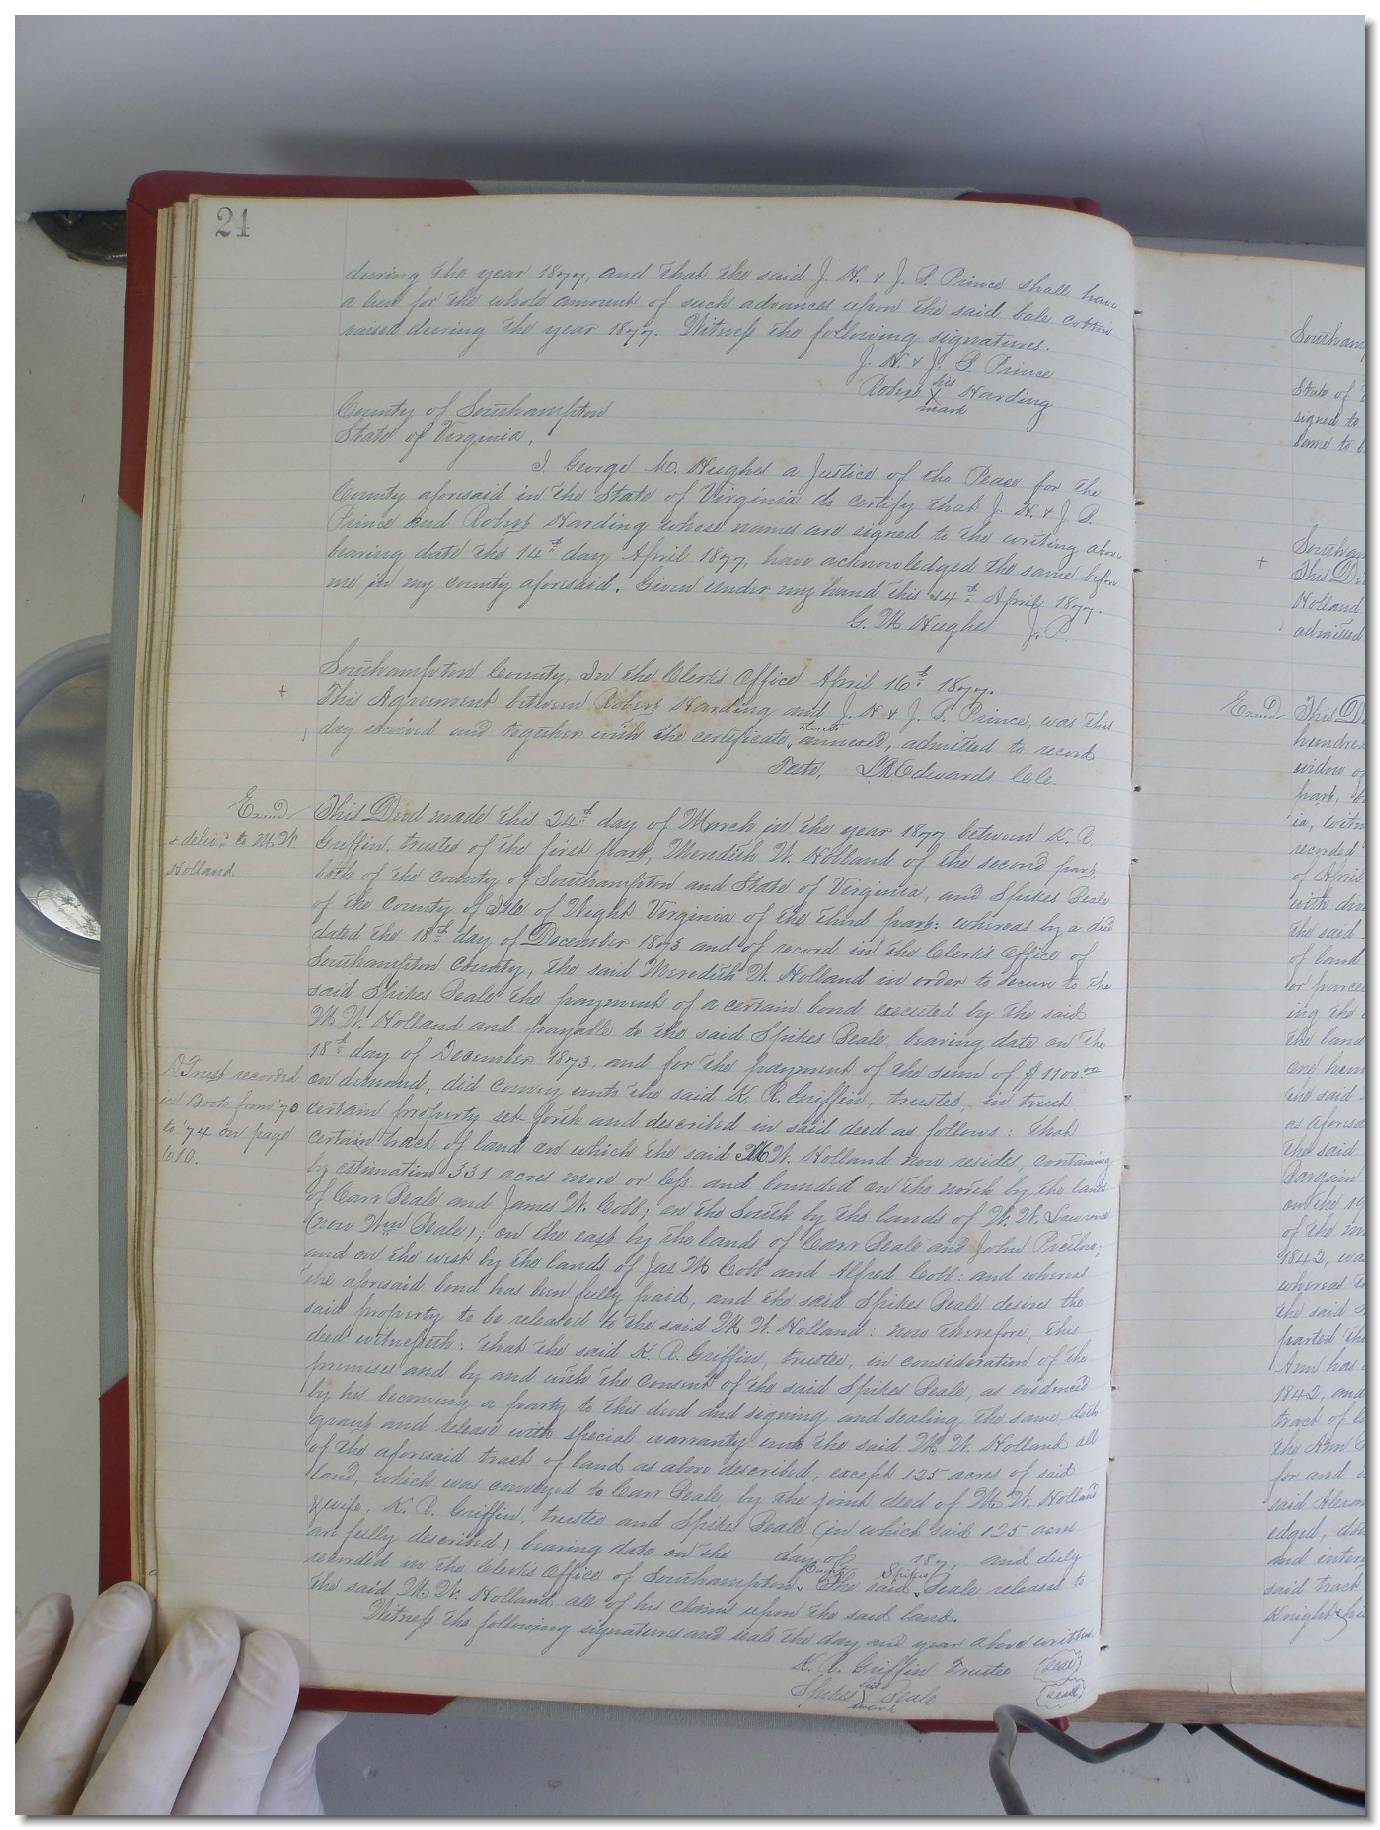 24
during the year 1877, and that the said J. H. & J. P. Prince shall have
a lien for the whole amount of such advances upon the said bale cotton
raised during the year 1877. Witness the following signatures.
J. H. & J. P. Prince
his
Robert X Harding
mark
County of Southampton
State of Virginia,
I George M. Hughes a Justice of the Peace for the
County aforesaid in the State of Virginia do certify that J. H. & J. P.
Prince and Robert Harding whose names are signed to the writing above
bearing date the 14th day April 1877, have acknowledged the same before
me in my county aforesaid. Given under my hand this 14th April 1877.
G. M Hughes J. P
Southampton County, In the Clerk's Office April 16th 1877.
+ This Agreement between Robert Harding and J. H & J. P. Prince, was this
day received and together with the certificate annexed, admitted to record
Teste, L R Edwards C.C.
Exmd
& delivd to M. W.
Holland
This Deed made this 24th day of March in the year 1877 between K. R.
Griffin, trustee of the first part, Meredith W. Holland of the second part,
both of the County of Southampton and State of Virginia, and Spikes Beale
of the County of Isle of Wight Virginia of the third part: whereas by a deed
dated the 18th day of December 1873 and of record in the Clerk's Office of
Southampton County, the said Meredith W. Holland in order to secure to the
said Spikes Beale the payment of a certain bond executed by the said
M. W. Holland and payable to the said Spikes Beale, bearing date on the
18th day of December 1873, and for the payment of the sum of $1100.00
D Trust recorded
in Book from '70
to '74 on page
610.
on demand, did convey unto the said K. R. Griffin, trustee, in trust
certain property set forth and described in said deed as follows: That
certain tract of land on which the said M W. Holland now resides, containing
by estimation 331 acres more or less and bounded on the north by the lands
of Carr Beale and James W. Cobb; on the South by the lands of W. W.
(now Wm Beale); on the east by the lands of Carr Beale and John
and on the west by the lands of Jas M Cobb and Alfred Cobb: and whereas
the aforesaid bond has been fully paid, and the said Spikes Beale desires the
said property to be released to the said M W. Holland: now therefore, this
deed witnesseth: that the said K. R. Griffin, trustee, in consideration of the
premises and by and with the consent of the said Spikes Beale, as evidenced
by his becoming a party to this deed and signing and sealing the same, doth
grant and release with special warranty unto the said M. W. Holland all
of the aforesaid tract of land as above described, except 125 acres of said
land, which was conveyed to Carr Beale by the joint deed of M. W. Holland
& wife, K. R. Griffin, trustee and Spikes Beale (in which said 125 acres
are fully described) bearing date on the day of 187 and duly
recorded in the Clerk's Office of Southampton County. The said Spikes Beale releases to
the said M. W. Holland all of his claim upon the said land.
Witness the following signatures and seals the day and year above written.
K. R. Griffin Trustee (seal)
his
Spikes X Beale (seal)
mark
State of
signed to
same to
+
This De
Holland
admitted
Exmd
This D
widow of
part,
is, witn
recorded
of April
with
the said
of land
or parce
ing the
the land
one hun
the said
as aforesa
the said
Bargain
on the 19
of the
1842, wa
whereas
the said
parted
Ann has
1842, and
tract of
the Ann
for and
said Alexan
edged, do
and inter
said tract
Knight